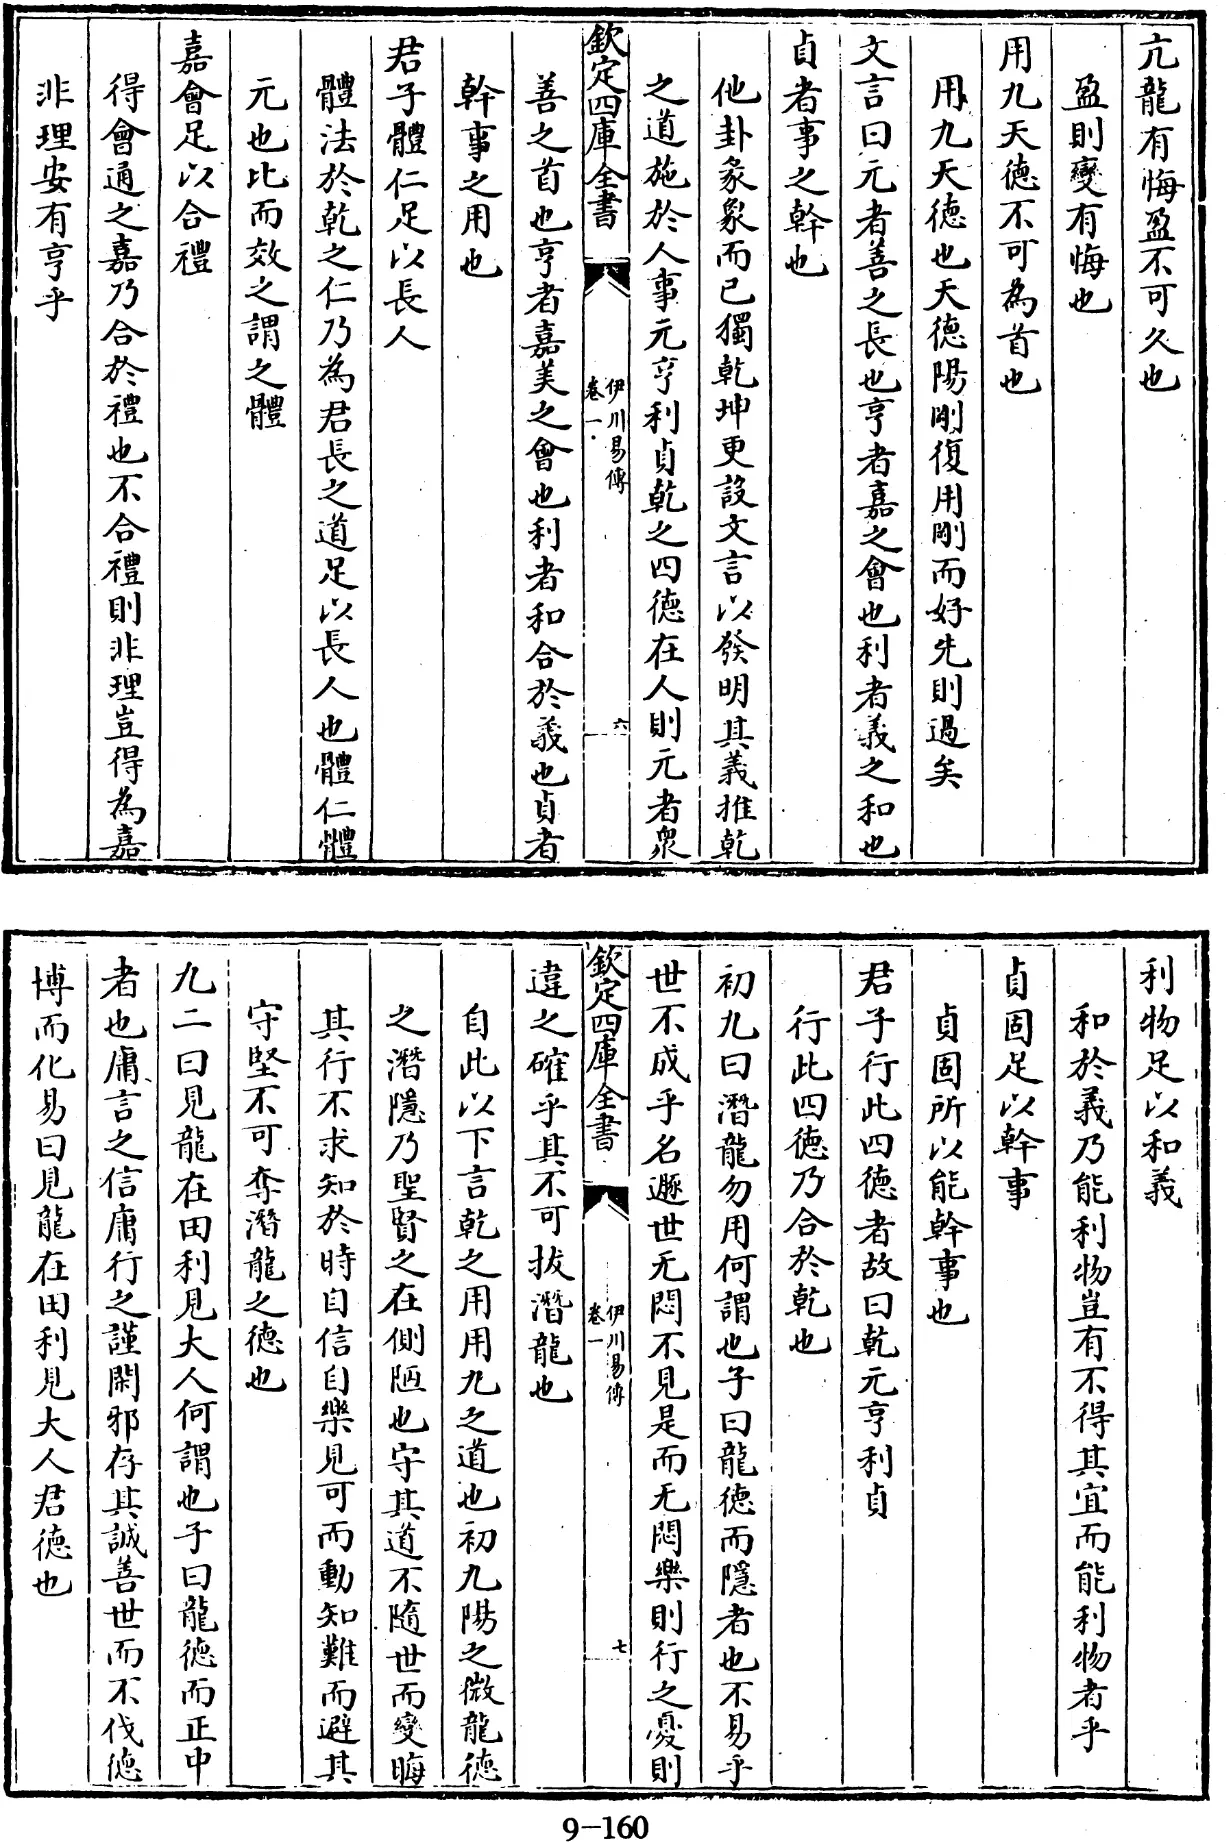 亢龍有悔盈不可久也
盈則變有悔也
用九天德不可為首也
用九天德也天德陽剛復用剛而好先則過矣
文言曰元者善之長也亨者嘉之會也利者義之和也
貞者事之幹也
他卦彖象而已獨乾坤更設文言以發明其義推乾
之道施於人事元亨利貞乾之四德在人則元者衆
欽定四庫全書
伊川易傳
卷一
六
善之首也亨者嘉美之會也利者和合於義也貞者
幹事之用也
君子體仁足以長人
體法於乾之仁乃為君長之道足以長人也體仁體
元也比而效之謂之體
嘉會足以合禮
得會通之嘉乃合於禮也不合禮則非理豈得為嘉
非理安有亨乎
利物足以和義
和於義乃能利物豈有不得其宜而能利物者乎
貞固足以幹事
貞固所以能幹事也
君子行此四德者故曰乾元亨利貞
行此四德乃合於乾也
初九曰潛龍勿用何謂也子曰龍德而隱者也不易乎
世不成乎名遯世无悶不見是而无悶樂則行之憂則
欽定四庫全書
伊川易傳
卷一
七
違之確乎其不可拔潛龍也
自此以下言乾之用用九之道也初九陽之微龍德
之潛隱乃聖賢之在側陋也守其道不隨世而變晦
其行不求知於時自信自樂見可而動知難而避其
守堅不可奪潛龍之德也
九二曰見龍在田利見大人何謂也子曰龍德而正中
者也庸言之信庸行之謹閑邪存其誠善世而不伐德
博而化易曰見龍在田利見大人君德也
9-160